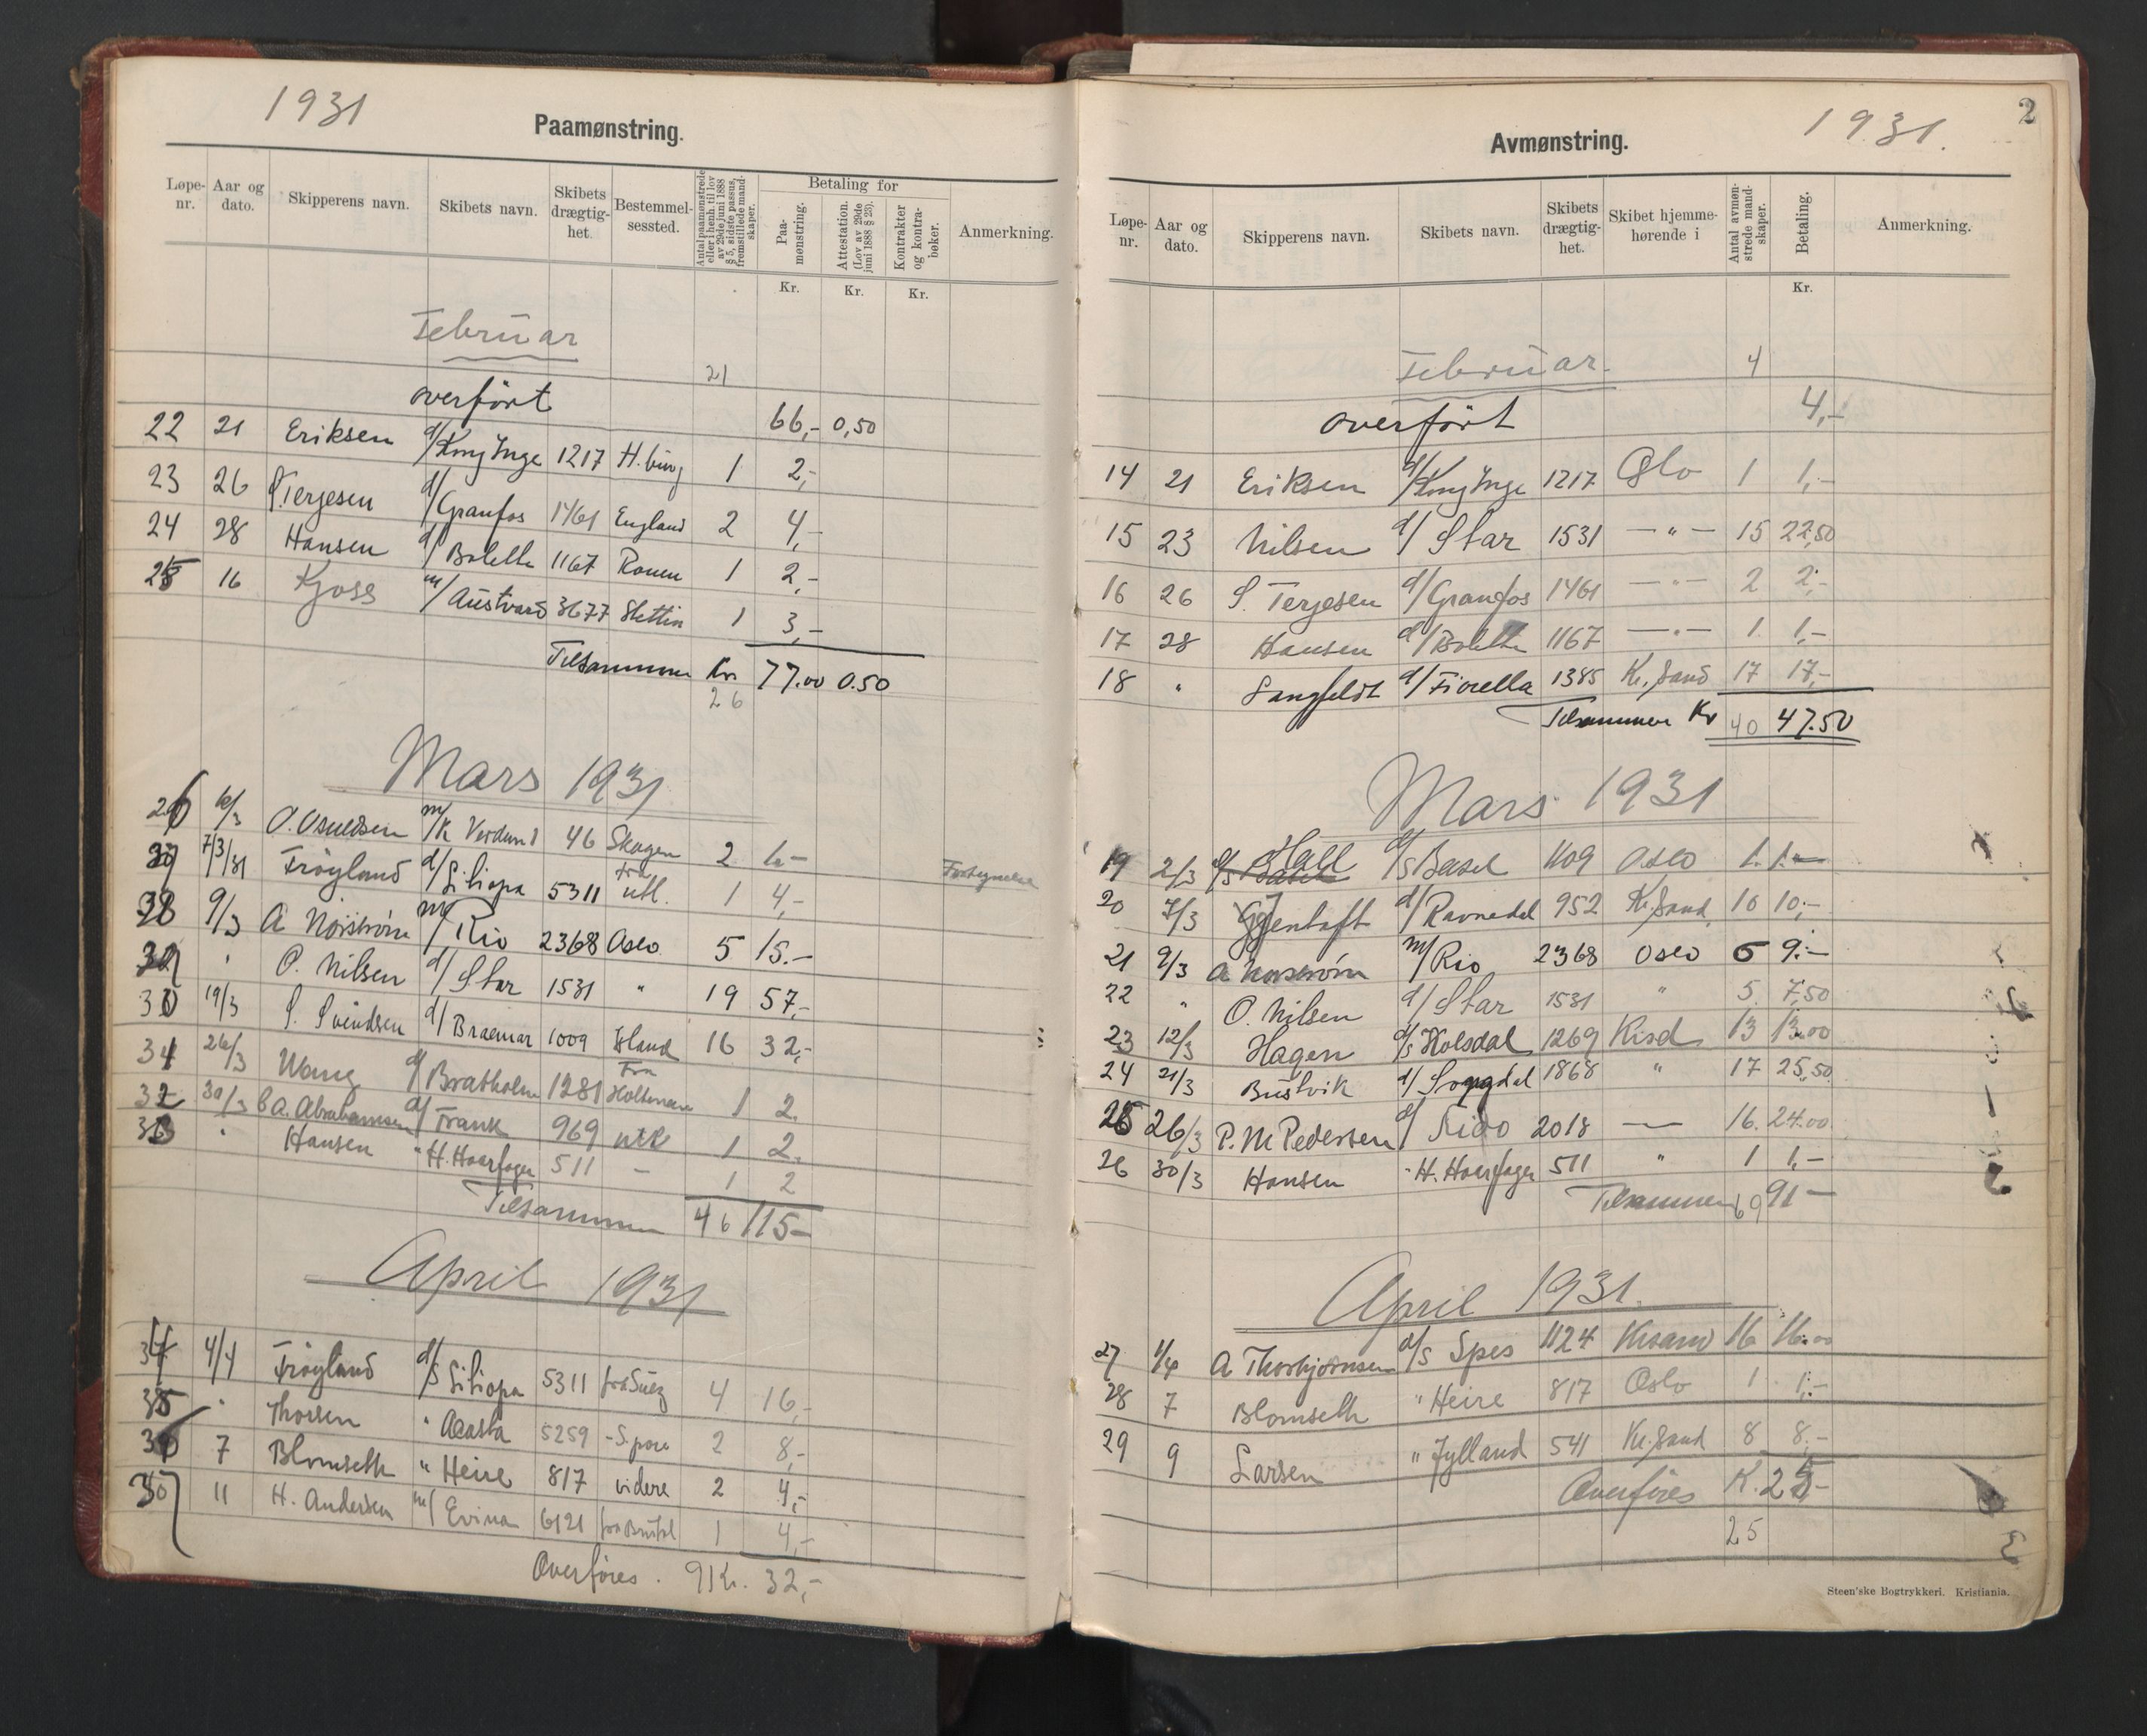 1931
Paamønstring.
Løpe-nr. Aar og dato. Skipperens navn. Skibets navn. Skibets drægtig-het. Bestemmel-sessted. Antal paamønstrede eller i henh. til lov av 29de juni 1888 § 5, sidste passus, fremstillede mand-skaper. Betaling for Paa-mønstring. Attestation. (Lov av 29de juni 1888 § 25). Kontrakter og kontra-bøker. Anmerkning.
Kr. Kr. Kr.
Februar
21
overført 66,- 0,50
22 21 Eriksen d/ Kong Inge 1217 H.burg 1 2,-
23 26 S. Terjesen d/ Granfos 1461 England 2 4,-
24 28 Hansen d/ Bolette 1167 Rouen 1 2,-
25 16 Kjoss m/ Austvard 3677 Stettin 1 3,-
Tilsammen Kr. 77.00 0.50
26
Mars 1931
26 6/3 O. Osuldsen m/k Verdund 46 Skagen 2
27 7/3/31 Frøyland d/ Siljopa 5311 fra utl. 1 4,-
28 9/3 A Norstrøm m/ Rio 2368 Oslo 5 15.-
29 " O. Nilsen d/ Star 1531 " 19 57,-
30 19/3 S. Svendsen d/ Braemar 1009 Island 16 32,-
31 26/3 Wang d/ Bratholm 1281 Fra 1 2.
32 30/3 C A. Abrahamsen d/ Frank 969 utk 1 2.
33 " Hansen " H. Haarfager 511 - 1 2
Tilsammen 46 115-
April 1931
34 4/4 Frøyland d/s Siljopa 5311 fra Suez 4 16,-
35 " Thorsen " Acasta 5259 - S.pore 2 8,-
36 7 Blomseth " Heire 817 videre 2 4,-
37 11 H. Andersen m/ Evina 6121 1 4,-
Overføres. 9 Kr. 32,-
2
1931.
Avmønstring.
Løpe-nr. Aar og dato. Skipperens navn. Skibets navn. Skibets drægtig-het. Skibet hjemme-hørende i Antal avmøn-strede mand-skaper. Betaling. Anmerkning.
Kr.
Februar. 4
overført 4,-
14 21 Eriksen d/ Kong Inge 1217 Oslo 1 1,-
15 23 Nilsen d/ Star 1531 — " — 15 22,50
16 26 S. Terjesen d/ Granfos 1461 — " — 2 2,-
17 28 Hansen d/ Bolette 1167 — " — 1 1,-
18 " Langfeldt d/ Fiorella 1385 Kr. Sand 17 17,-
Tilsammen Kr 40 47.50
Mars 1931
19 2/3 Hall d/s Basel 1109 Oslo 1. 1.-
20 7/3 d/ Ravnedal 952 Kr. Sand, 10 10,-
21 9/3 A Norstrøm m/ Rio 2368 Oslo 6 9.-
22 " O. Nilsen d/ Star 1531 " 5. 7,50
23 12/3 Hagen d/s Holsdal 1269 Krsd 13 13.00
24 21/3 Bustvik d/ Songdal 1868 " 17 25,50
25 26/3 P. M. Pedersen d/ Nido 2018 — 16. 24.00
26 30/3 Hansen " H. Haarfager 511 " 1 1,-
Tilsammen 69 91 -
April 1931.
27 1/4 A Thorbjørnsen d/s Spes 1124 Krsand 16 16.00
28 7 Blomseth " Heire 817 Oslo 1 1,-
29 9 Larsen " Jylland 541 Kr. Sand 8 8,-
Overføres K. 25,-
25
Steen'ske Bogtrykkeri. Kristiania.